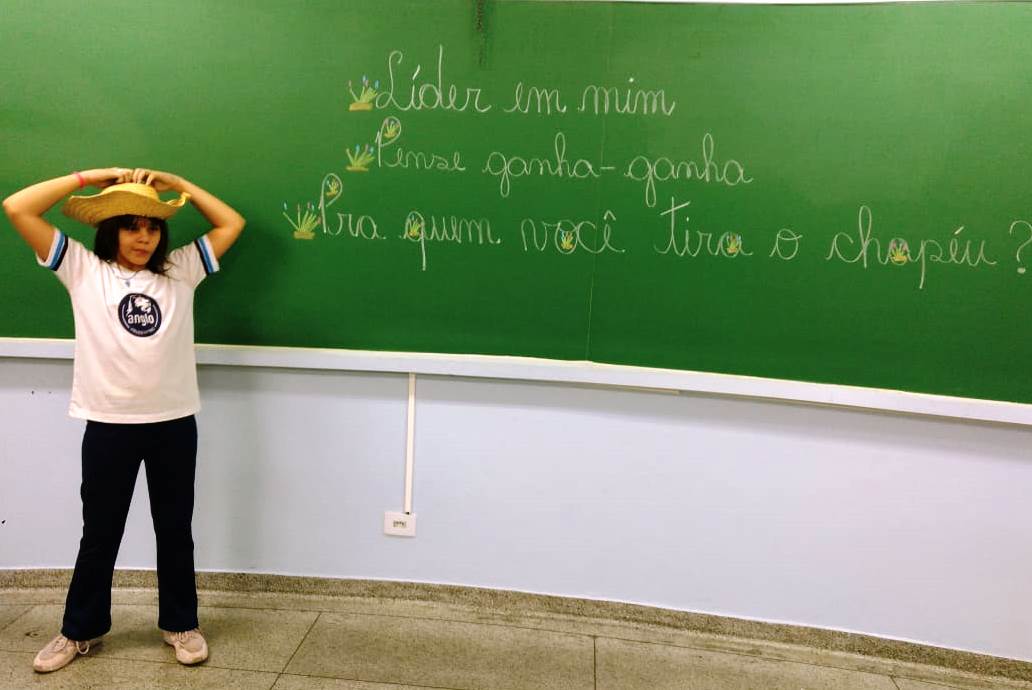 Líder em mim
Pense ganha-ganha
Pra quem você tira o chapéu?
anglo